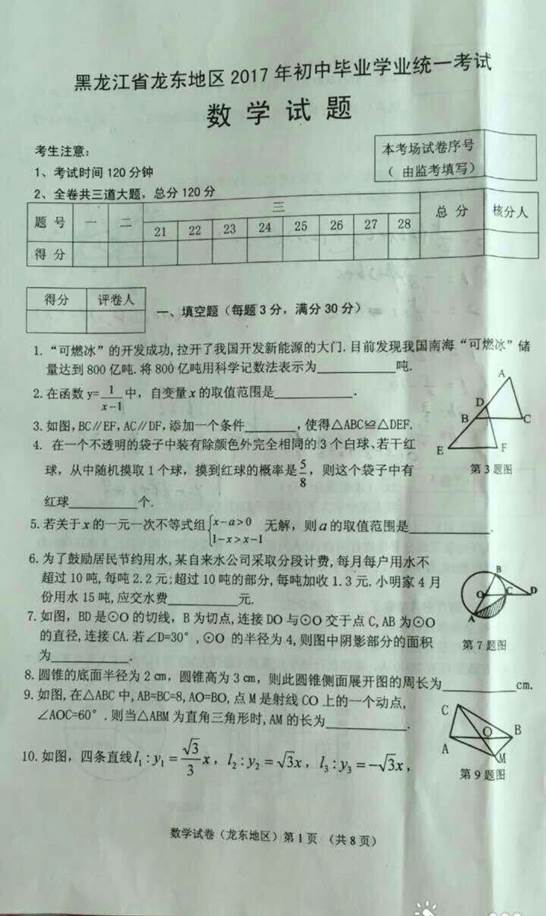 黑龙江省龙东地区2017年初中毕业学业统一考试
数学试题
考生注意:
1、考试时间120分钟
2、全卷共三道大题,总分120分
本考场试卷序号
(由监考填写)
题号 一 二 三 总分 核分人
21 22 23 24 25 26 27 28
得分
得分 评卷人
一、填空题(每题3分,满分30分)
1.“可燃冰”的开发成功,拉开了我国开发新能源的大门.目前发现我国南海“可燃冰”储
量达到800亿吨.将800亿吨用科学记数法表示为________吨.
2.在函数y=1/(x-1)中,自变量x的取值范围是________.
3.如图,BC∥EF,AC∥DF,添加一个条件________,使得△ABC≌△DEF.
A
D
B
C
E
F
第3题图
4. 在一个不透明的袋子中装有除颜色外完全相同的3个白球、若干红
球,从中随机摸取1个球,摸到红球的概率是5/8,则这个袋子中有
红球________个.
5.若关于x的一元一次不等式组{x-a>0
1-x>x-1 无解,则a的取值范围是________.
6.为了鼓励居民节约用水,某自来水公司采取分段计费,每月每户用水不
超过10吨,每吨2.2元;超过10吨的部分,每吨加收1.3元.小明家4月
份用水15吨,应交水费________元.
7.如图,BD是⊙O的切线,B为切点,连接DO与⊙O交于点C,AB为⊙O
的直径,连接CA.若∠D=30°,⊙O的半径为4,则图中阴影部分的面积
为________.
B
O
C
D
A
第7题图
8.圆锥的底面半径为2cm,圆锥高为3cm,则此圆锥侧面展开图的周长为________cm.
9.如图,在△ABC中,AB=BC=8,AO=BO,点M是射线CO上的一个动点,
∠AOC=60°.则当△ABM为直角三角形时,AM的长为________.
C
O
B
A
M
第9题图
10.如图,四条直线l₁:y₁=√3/3x,l₂:y₂=√3x,l₃:y₃=-√3x,
数学试卷(龙东地区)第1页 (共8页)